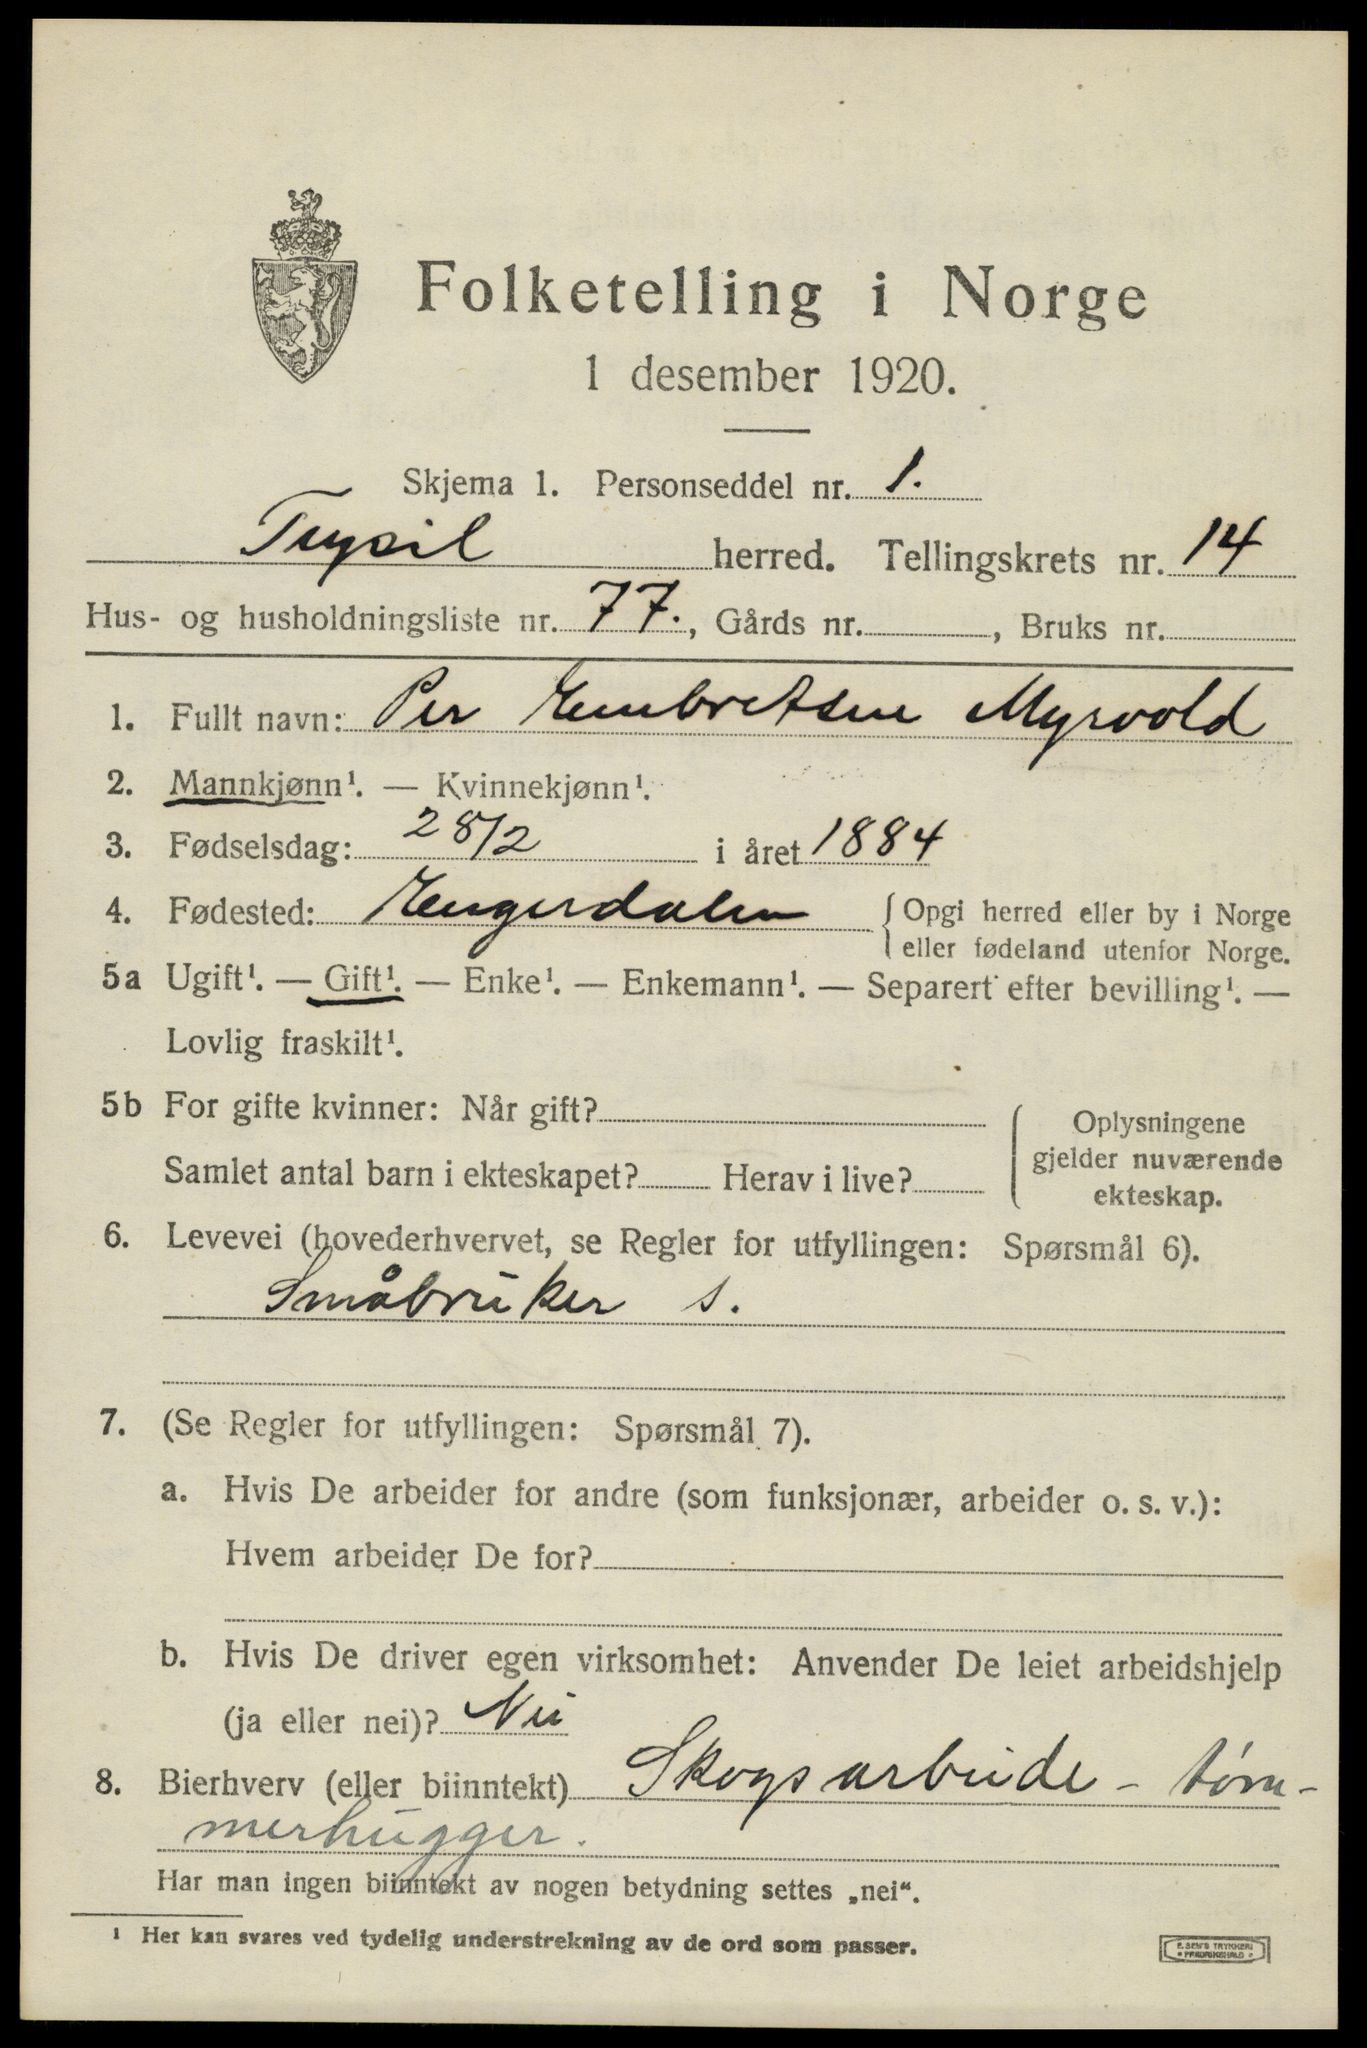 Folketelling i Norge
1 desember 1920.
Skjema 1. Personseddel nr. 1.
Trysil herred. Tellingskrets nr. 14
Hus- og husholdningsliste nr. 77., Gårds nr. , Bruks nr.
1. Fullt navn: Per Embretsen Myrvold
2. Mannkjønn¹. — Kvinnekjønn¹.
3. Fødselsdag: 28/2 i året 1884
4. Fødested: Engerdalen { Opgi herred eller by i Norge
eller fødeland utenfor Norge.
5a Ugift¹. — Gift¹. — Enke¹. — Enkemann¹. — Separert efter bevilling¹. —
Lovlig fraskilt¹.
5b For gifte kvinner: Når gift?
Samlet antal barn i ekteskapet? Herav i live?
Oplysningene
gjelder nuværende
ekteskap.
6. Levevei (hovederhvervet, se Regler for utfyllingen: Spørsmål 6).
Småbruker s.
7. (Se Regler for utfyllingen: Spørsmål 7).
a. Hvis De arbeider for andre (som funksjonær, arbeider o. s. v.):
Hvem arbeider De for?
b. Hvis De driver egen virksomhet: Anvender De leiet arbeidshjelp
(ja eller nei)? Nei
8. Bierhverv (eller biinntekt) Skogsarbeide - tøm-
merhugger.
Har man ingen biinntekt av nogen betydning settes „nei“.
¹ Her kan svares ved tydelig understrekning av de ord som passer.
E. SEM'S TRYKKERI
FREDRIKSHALD